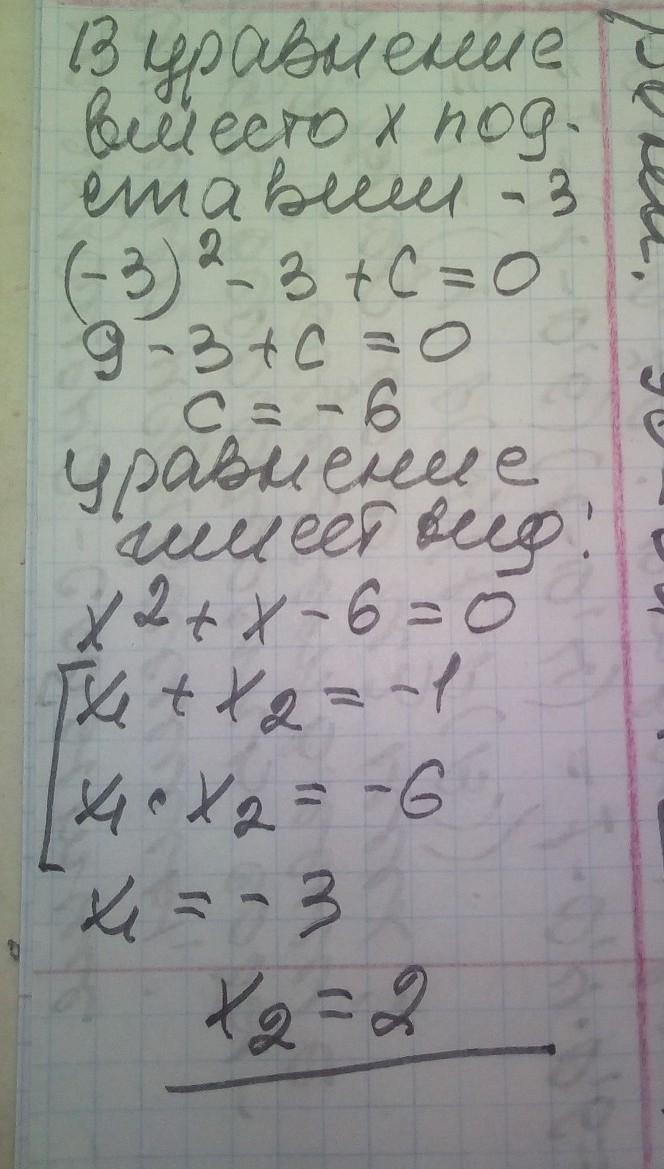 В уравнение
вместо x под-
ставим -3
(-3)² - 3 + C = 0
9 - 3 + c = 0
c = -6
уравнение
имеет вид:
x² + x - 6 = 0
[x₁ + x₂ = -1
x₁ · x₂ = -6
x₁ = -3
x₂ = 2